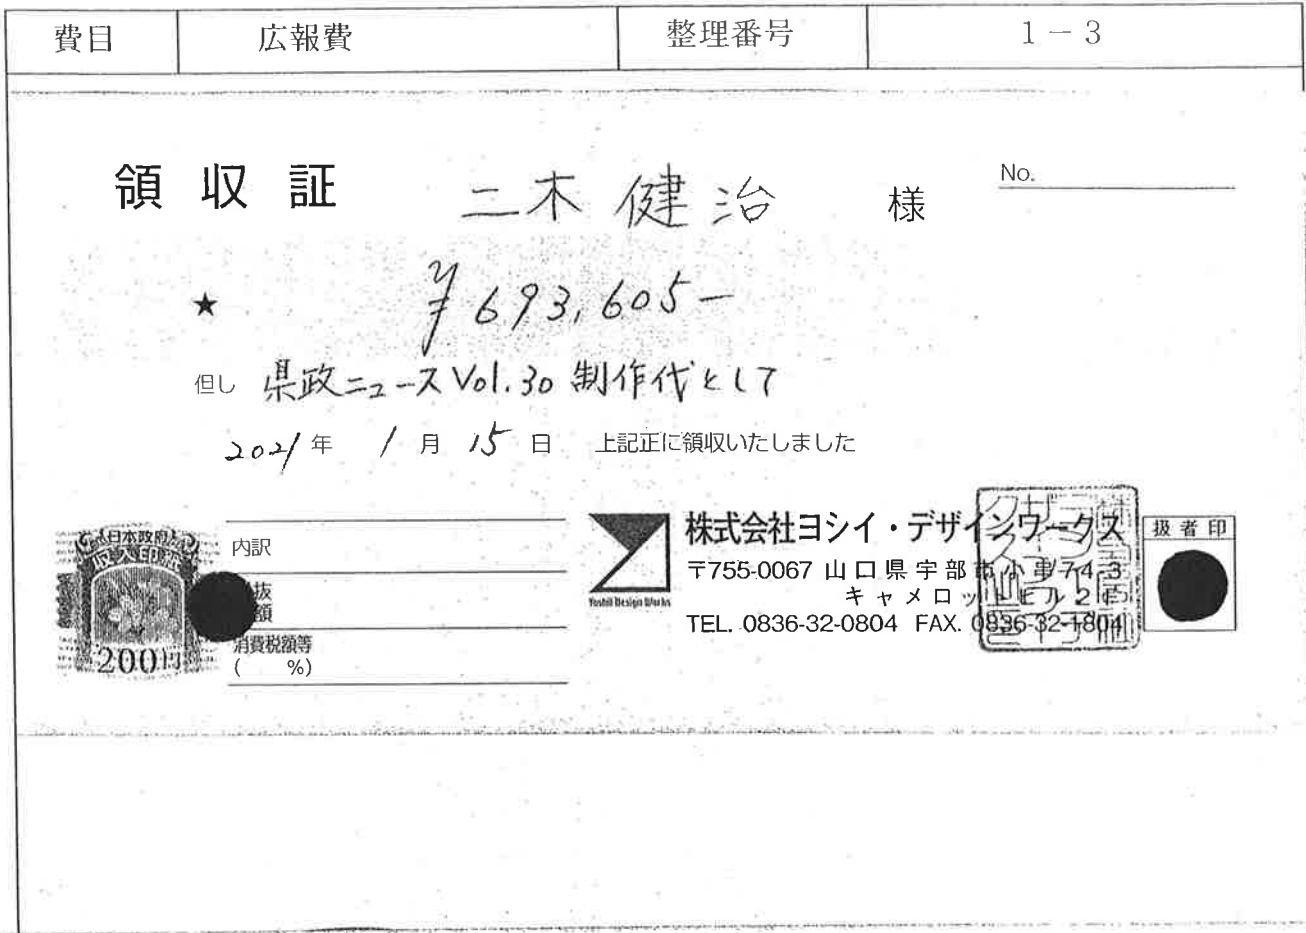 費目 広報費 整理番号 1－3
領収証 二木 健治 様 No.
★ ¥693,605－
但し 県政ニュースVol.30 制作代として
2021年 1月 15日 上記正に領収いたしました
日本政府
収入印紙
200円
内訳
抜
額
消費税額等
( %)
Yoshii Design Works
株式会社ヨシイ・デザインワークス
〒755-0067 山口県宇部市小串74-3
キャメロットビル2F
TEL. 0836-32-0804 FAX. 0836-32-1804
扱者印